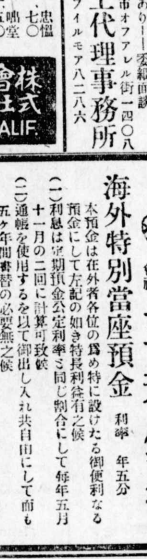 市オフアレル街一四〇八
士代理事務所
フイルモア八二八六
忠愠
七〇
咄堂
株式
會社
ALIF.
海外特別當座預金
利率 年五分
本預金は在外者各位の爲め特に設けたる御便利なる
預金にして左記の如き特長利益有之候
(一)利息は定期預金公定利率と同じ割合にして毎年五月
十一月の二回に計算可致候
(二)通帳を使用するを以て御出し入れ共自由にして而も
五ケ年間書替の必要無之候